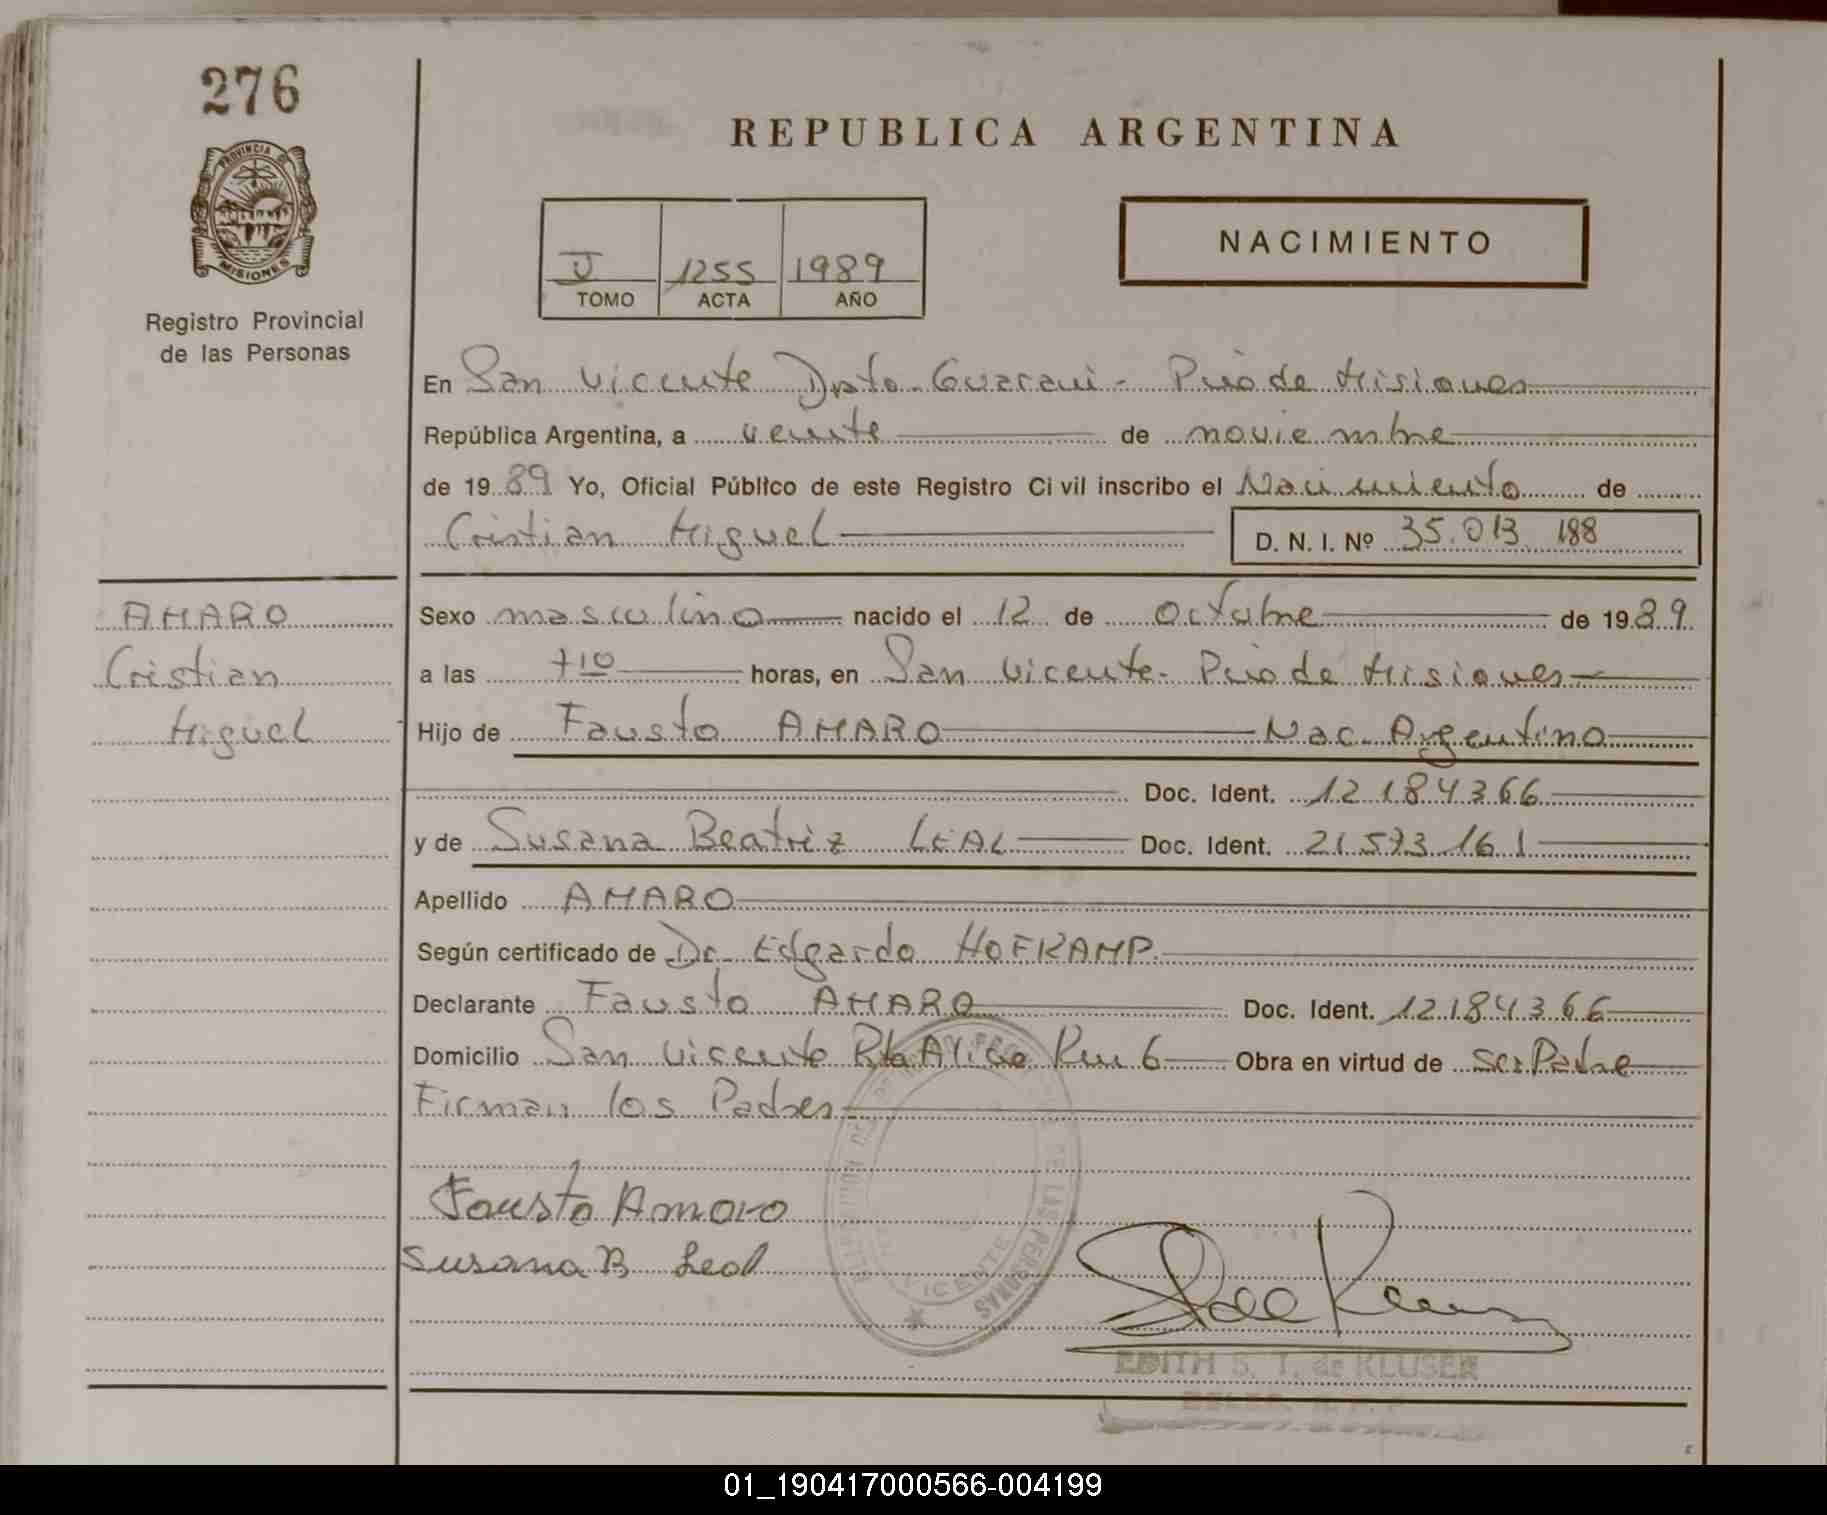 276
PROVINCIA DE
MISIONES
Registro Provincial
de las Personas
REPUBLICA ARGENTINA
J 1255 1989
TOMO ACTA AÑO
NACIMIENTO
En San Vicente Dpto. Guarani - Pcia de Misiones
República Argentina, a veinte de noviembre
de 1989 Yo, Oficial Público de este Registro Civil inscribo el Nacimiento de
Cristian Miguel D. N. I. Nº 35.013 188
AMARO
Cristian
Miguel
Sexo masculino nacido el 12 de Octubre de 1989.
a las 7 10 horas, en San Vicente - Pcia de Misiones
Hijo de Fausto AMARO Nac. Argentino
Doc. Ident. 12184366
y de Susana Beatriz LEAL Doc. Ident. 21.573 161
Apellido AMARO
Según certificado de Dr. Edgardo HOFKAMP.
Declarante Fausto AMARO Doc. Ident. 12184366
Domicilio San Vicente Pto Alicia Km 6 Obra en virtud de Ser Padre
Firman los Padres
Fausto Amaro
Susana B Leal
DE LAS PERSONAS
EDITH S. T. de KLUSEN
01_190417000566-004199